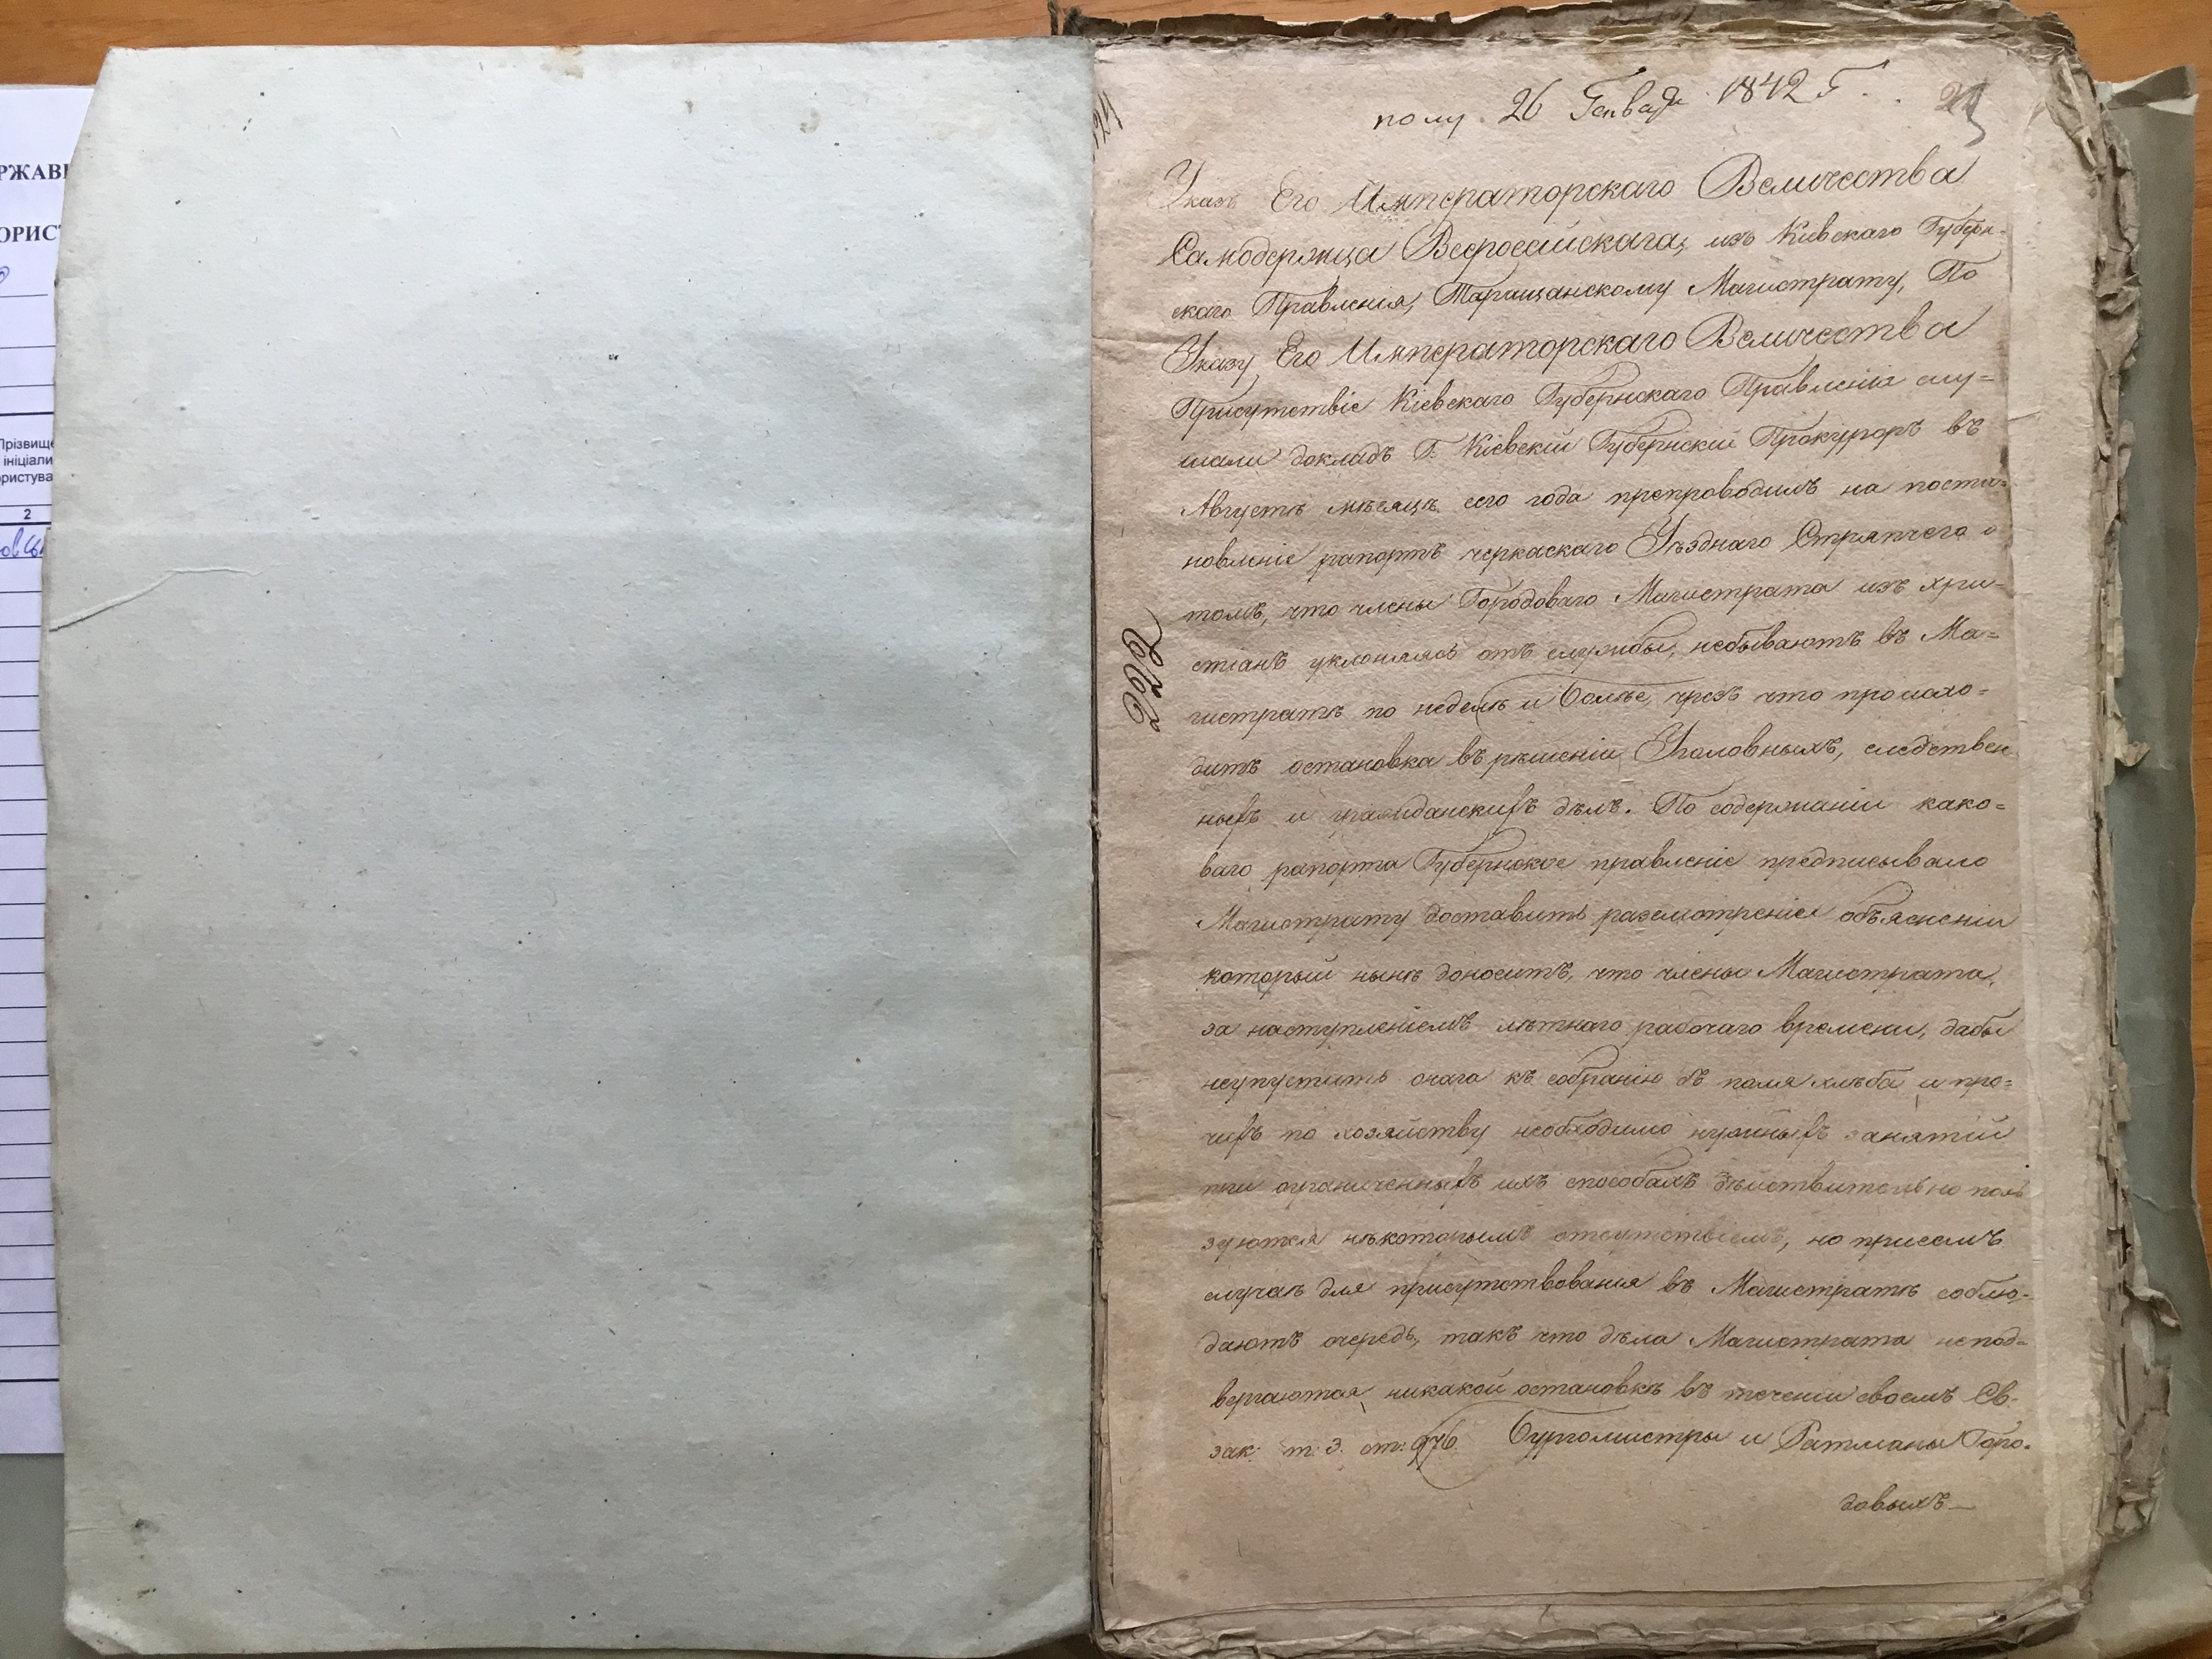 РЖАВН
ОРИСТ
Прізвище
ініціали
ористува
2
полу. 26 Генваря 1842 Г.
Указъ Его Императорскаго Величества
Самодержца Всероссійскаго, изъ Кіевскаго Губерн-
скаго Правленія, Таращанскому Магистрату, По
Указу Его Императорскаго Величества
Присутствіе Кіевскаго Губернскаго Правленія слу=
шали докладъ Г. Кіевскій Губернскій Прокуроръ въ
Августѣ мѣсяцѣ сего года препроводилъ на поста=
новленіе рапортъ черкаскаго Уѣзднаго Стряпчего о
томъ, что члены Городоваго Магистрата изъ хри=
стіанъ уклоняясь отъ службы, небываютъ въ Ма=
гистратѣ по неделѣ и болѣе, чрезъ что происхо=
дитъ остановка въ рѣшеніи Уголовныхъ, следствен
ныхъ и гражданскихъ дѣлъ. По содержаніи како=
ваго рапорта Губернское правленіе предписывало
Магистрату доставить разсмотреніе объясненіи
который нынѣ доноситъ, что члены Магистрата,
за наступленіемъ лѣтнаго рабочаго времени, дабы
неупустить онаго къ собранію съ поля хлѣба и про=
чихъ по хозяйству необходимо нужныхъ занятій
при ограниченныхъ ихъ способахъ дѣйствительно поль
зуются нѣкоторымъ отсутствіемъ, но присемъ
случаѣ для присутствованія въ Магистратѣ соблю-
даютъ очередь, такъ что дѣла Магистрата непод=
вергаются никакой остановкѣ въ теченіи своемъ Св.
зак: т: 3. ст: 976. Бургомистры и Ратманы Горо-
довыхъ